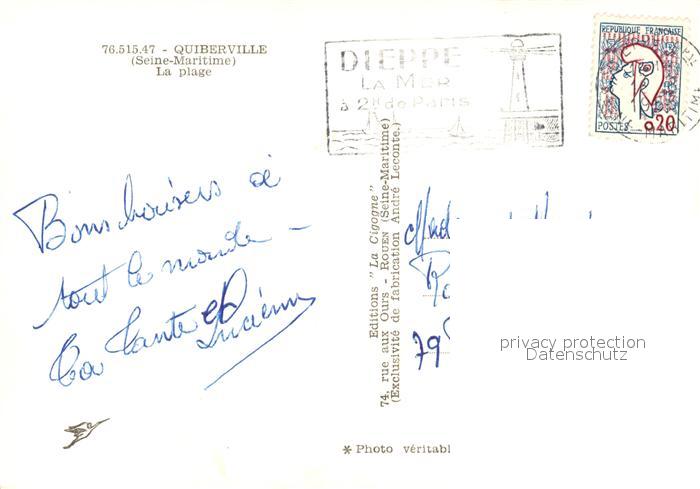 76.515.47 - QUIBERVILLE
(Seine-Maritime)
La plage
DIEPPE
LA MER
à 2H de Paris
REPUBLIQUE FRANÇAISE
POSTES 0,20
Bons baisers à
tout le monde -
La Tante Lucienne
Editions "La Cigogne"
74, rue aux Ours - ROUEN (Seine-Maritime)
(Exclusivité de fabrication André Leconte.)
79
privacy protection
Datenschutz
* Photo véritabl